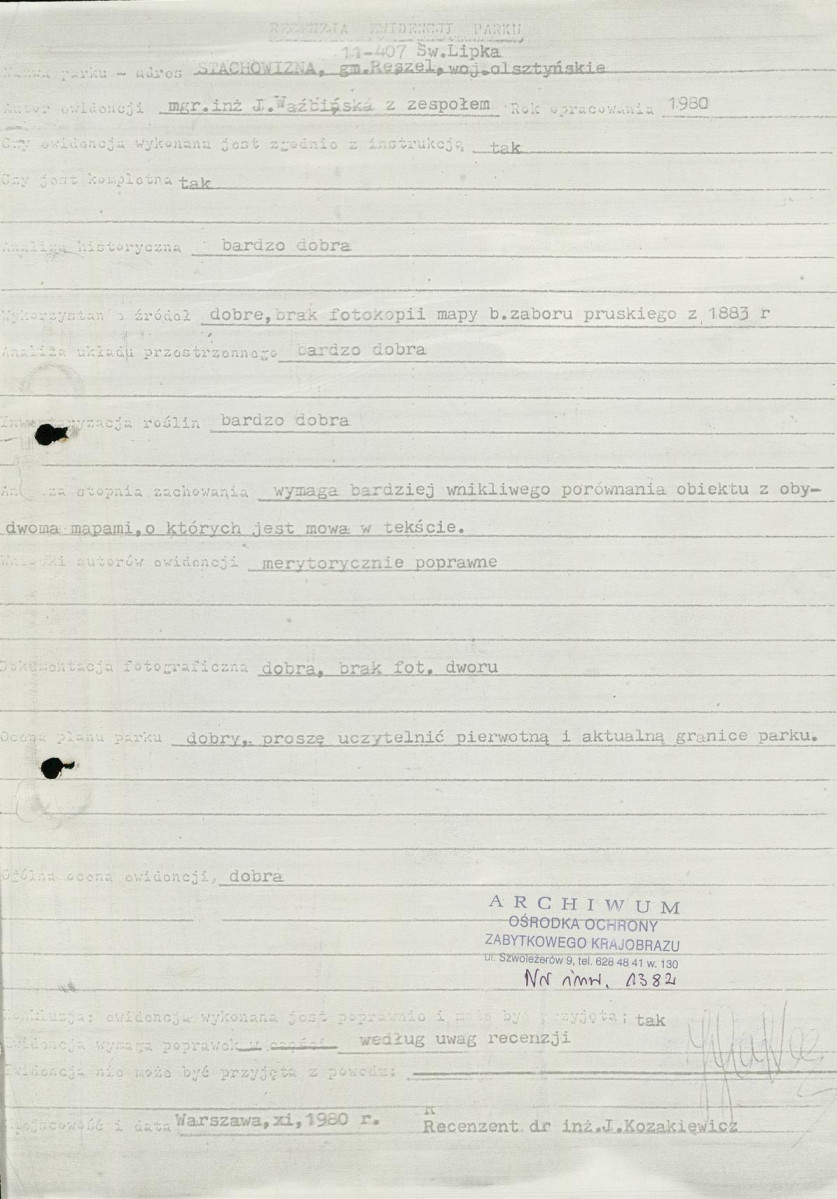 RECENZJA EWIDENCJI PARKU
11-407 Św.Lipka
Nazwa parku - adres STACHOWIZNA, gm.Reszel, woj.olsztyńskie
Autor ewidencji mgr.inż J.Waźbińska z zespołem Rok opracowania 1980
Czy ewidencja wykonana jest zgodnie z instrukcją tak
Czy jest kompletna tak
Analiza historyczna bardzo dobra
Wykorzystanie źródeł dobre, brak fotokopii mapy b.zaboru pruskiego z 1883 r
Analiza układu przestrzennego bardzo dobra
Inwentaryzacja roślin bardzo dobra
Analiza stopnia zachowania wymaga bardziej wnikliwego porównania obiektu z oby-
dwoma mapami, o których jest mowa w tekście.
Wnioski autorów ewidencji merytorycznie poprawne
Dokumentacja fotograficzna dobra, brak fot. dworu
Ocena planu parku dobry, proszę uczytelnić pierwotną i aktualną granice parku.
Ogólna ocena ewidencji, dobra
ARCHIWUM
OŚRODKA OCHRONY
ZABYTKOWEGO KRAJOBRAZU
ul. Szwoleżerów 9, tel. 628 48 41 w. 130
NN inw. 1382
Konkluzja: ewidencja wykonana jest poprawnie i może być przyjęta; tak
Ewidencja wymaga poprawek w części według uwag recenzji
Ewidencja nie może być przyjęta z powodu:
Miejscowość i data Warszawa, xi, 1980 r. Recenzent dr inż.J.Kozakiewicz